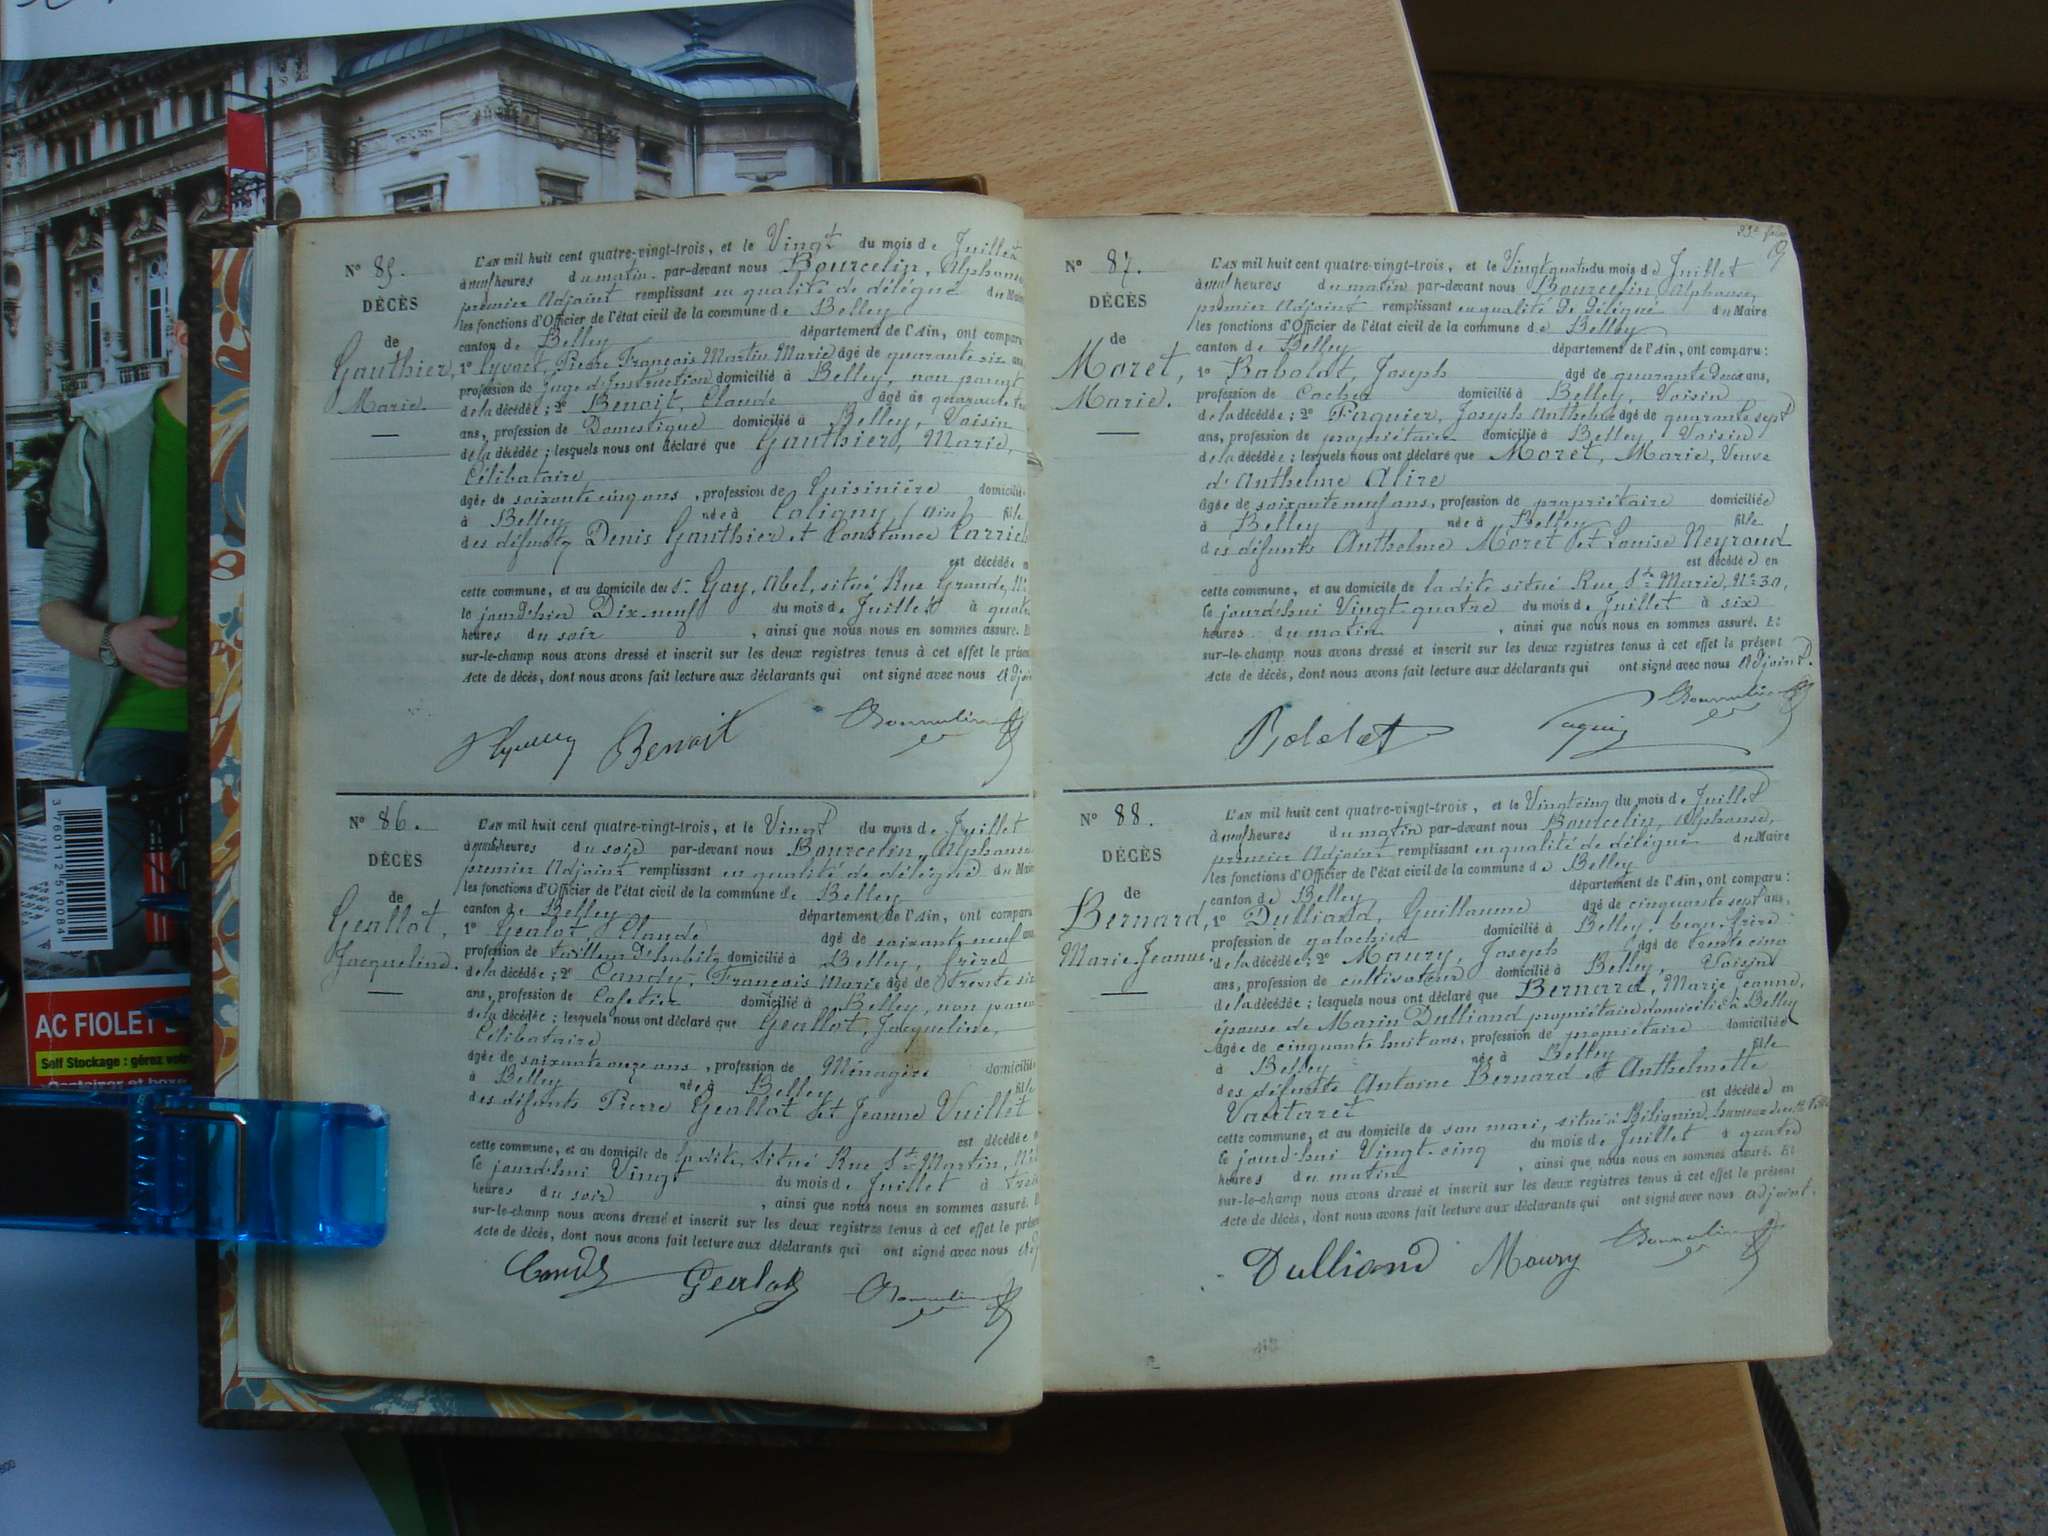 N° 85.
DÉCÈS
de
Gauthier,
Marie.
L'AN mil huit cent quatre-vingt-trois, et le Vingt du mois de Juillet
à neuf heures du matin par-devant nous Bourcelin, Alphonse
premier Adjoint remplissant en qualité de délégué du Maire
les fonctions d'Officier de l'état civil de la commune de Belley
canton de Belley département de l'Ain, ont comparu
1° Pierre François Martin Marie âgé de quarante six ans
profession de Juge d'Instruction domicilié à Belley, non parent
de la décédée ; 2° Benoit, Claude âgé de quarante
ans, profession de Domestique domicilié à Belley, Voisin
de la décédée ; lesquels nous ont déclaré que Gauthier, Marie,
Célibataire
âgée de soixante cinq ans, profession de Cuisinière domiciliée
à Belley née à Coligny (Ain) fille
des défunts Denis Gauthier et Constance
est décédée en
cette commune, et au domicile de Sr. Gay, Abel, situé Rue Grande, N°
le jour d'hier Dix-neuf du mois de Juillet à quatre
heures du soir, ainsi que nous nous en sommes assuré. Et
sur-le-champ nous avons dressé et inscrit sur les deux registres tenus à cet effet le présent
Acte de décès, dont nous avons fait lecture aux déclarants qui ont signé avec nous Adjoint
Benoit
N° 86.
DÉCÈS
de
Geallot,
Jacqueline.
L'AN mil huit cent quatre-vingt-trois, et le Vingt du mois de Juillet
à quatre heures du soir par-devant nous Bourcelin, Alphonse
premier Adjoint remplissant en qualité de délégué du Maire
les fonctions d'Officier de l'état civil de la commune de Belley
canton de Belley département de l'Ain, ont comparu
1° Gealot, Claude âgé de soixante neuf ans
profession de tailleur d'habits domicilié à Belley, frère
de la décédée ; 2° Candy, François Marie âgé de trente six
ans, profession de Cafetier domicilié à Belley, non parent
de la décédée ; lesquels nous ont déclaré que Geallot, Jacqueline,
Célibataire
âgée de soixante onze ans, profession de Ménagère domiciliée
à Belley née à Belley fille
des défunts Pierre Geallot et Jeanne Vuillet
est décédée
cette commune, et au domicile de la dite, situé Rue St Martin, N°
le jourd'hui Vingt du mois de Juillet à trois
heures du soir, ainsi que nous nous en sommes assuré. Et
sur-le-champ nous avons dressé et inscrit sur les deux registres tenus à cet effet le présent
Acte de décès, dont nous avons fait lecture aux déclarants qui ont signé avec nous
Candy Gealot
N° 87.
DÉCÈS
de
Moret,
Marie.
L'AN mil huit cent quatre-vingt-trois, et le Vingt quatre du mois de Juillet
à neuf heures du matin par-devant nous Bourcelin, Alphonse,
premier Adjoint remplissant en qualité de Délégué du Maire
les fonctions d'Officier de l'état civil de la commune de Belley
canton de Belley département de l'Ain, ont comparu :
1° Bobolat, Joseph âgé de quarante deux ans,
profession de Cocher domicilié à Belley, Voisin
de la décédée ; 2° Faquier, Joseph Anthelme âgé de quarante sept
ans, profession de propriétaire domicilié à Belley, Voisin
de la décédée ; lesquels nous ont déclaré que Moret, Marie, Veuve
d'Anthelme Alire
âgée de soixante neuf ans, profession de propriétaire domiciliée
à Belley née à Belley fille
des défunts Anthelme Moret et Louise Neyroud
est décédée en
cette commune, et au domicile de la dite situé Rue Ste Marie, N° 30,
le jourd'hui Vingt-quatre du mois de Juillet à six
heures du matin, ainsi que nous nous en sommes assuré. Et
sur-le-champ nous avons dressé et inscrit sur les deux registres tenus à cet effet le présent
Acte de décès, dont nous avons fait lecture aux déclarants qui ont signé avec nous Adjoint.
N° 88.
DÉCÈS
de
Bernard,
Marie Jeanne.
L'AN mil huit cent quatre-vingt-trois, et le Vingt cinq du mois de Juillet
à neuf heures du matin par-devant nous Bourcelin, Alphonse,
premier Adjoint remplissant en qualité de délégué du Maire
les fonctions d'Officier de l'état civil de la commune de Belley
canton de Belley département de l'Ain, ont comparu :
1° Dulliand, Guillaume âgé de cinquante sept ans,
profession de galochier domicilié à Belley, beau-frère
de la décédée ; 2° Maury, Joseph âgé de trente cinq
ans, profession de cultivateur domicilié à Belley, Voisin
de la décédée ; lesquels nous ont déclaré que Bernard, Marie Jeanne,
épouse de Marin Dulliand propriétaire domicilié à Belley
âgée de cinquante huit ans, profession de propriétaire domiciliée
à Belley née à Belley fille
des défunts Antoine Bernard et Anthelmette
Vautaret est décédée en
cette commune, et au domicile de son mari, situé à Bilignin, hameau de cette Ville
le jourd'hui Vingt-cinq du mois de Juillet à quatre
heures du matin, ainsi que nous nous en sommes assuré. Et
sur-le-champ nous avons dressé et inscrit sur les deux registres tenus à cet effet le présent
Acte de décès, dont nous avons fait lecture aux déclarants qui ont signé avec nous adjoint.
Dulliand Maury
AC FIOLET
Self Stockage : gérez
Container et boxe
3 760112 510084